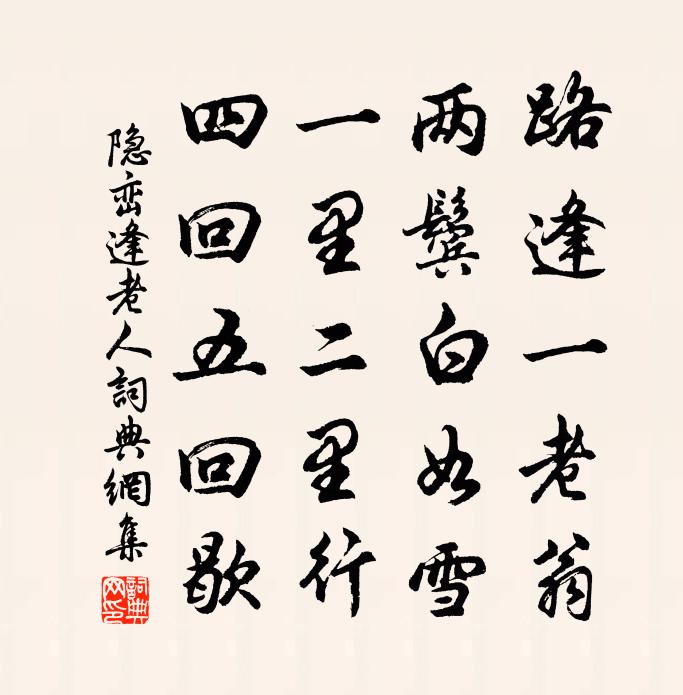 路逢一老翁
两鬓白如雪
一里二里行
四回五回歇
隐峦逢老人詞典網集
詞典网印